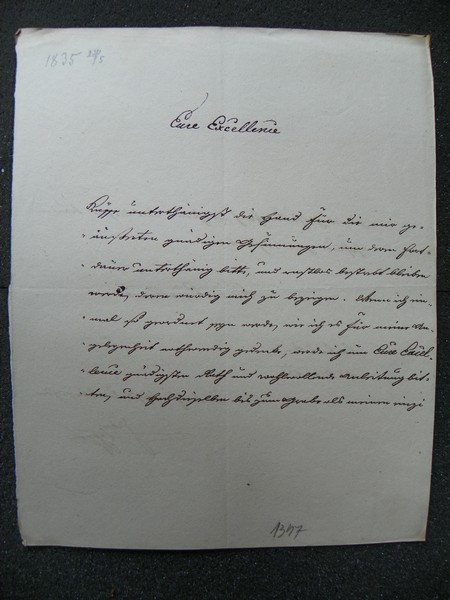 1835 29/5
Eure Excellenz
Küsse unterthänigst die Hand für die mir ge-
äusserten gnädigen Gesinnungen, um deren Fort-
dauer unterthänig bitte, und rastlos bestrebt bleiben
werde, deren würdig mich zu bezeigen. Wenn ich ein-
mal so geordnet seyn werde, wie ich es für meine An-
gelegenheit nothwendig gedenke, werde ich um Eure Excel-
lenz gnädigsten Rath und wohlwollende Anleitung bit-
ten, und Hochdieselben bis zum Grabe als meinen einzi
1347